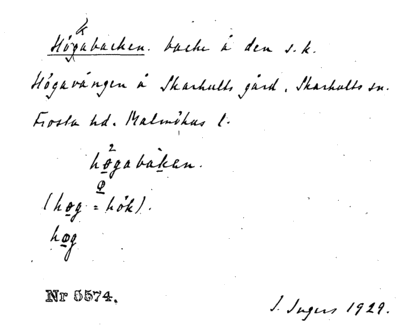 Högabacken. backe å den s.k.
Högavången å Skarhults gård, Skarhults sn.
Frosta hd. Malmöhus l.
høgabakan.
(høg = hök).
høg
Nr 5574.
I. Ingers 1929.